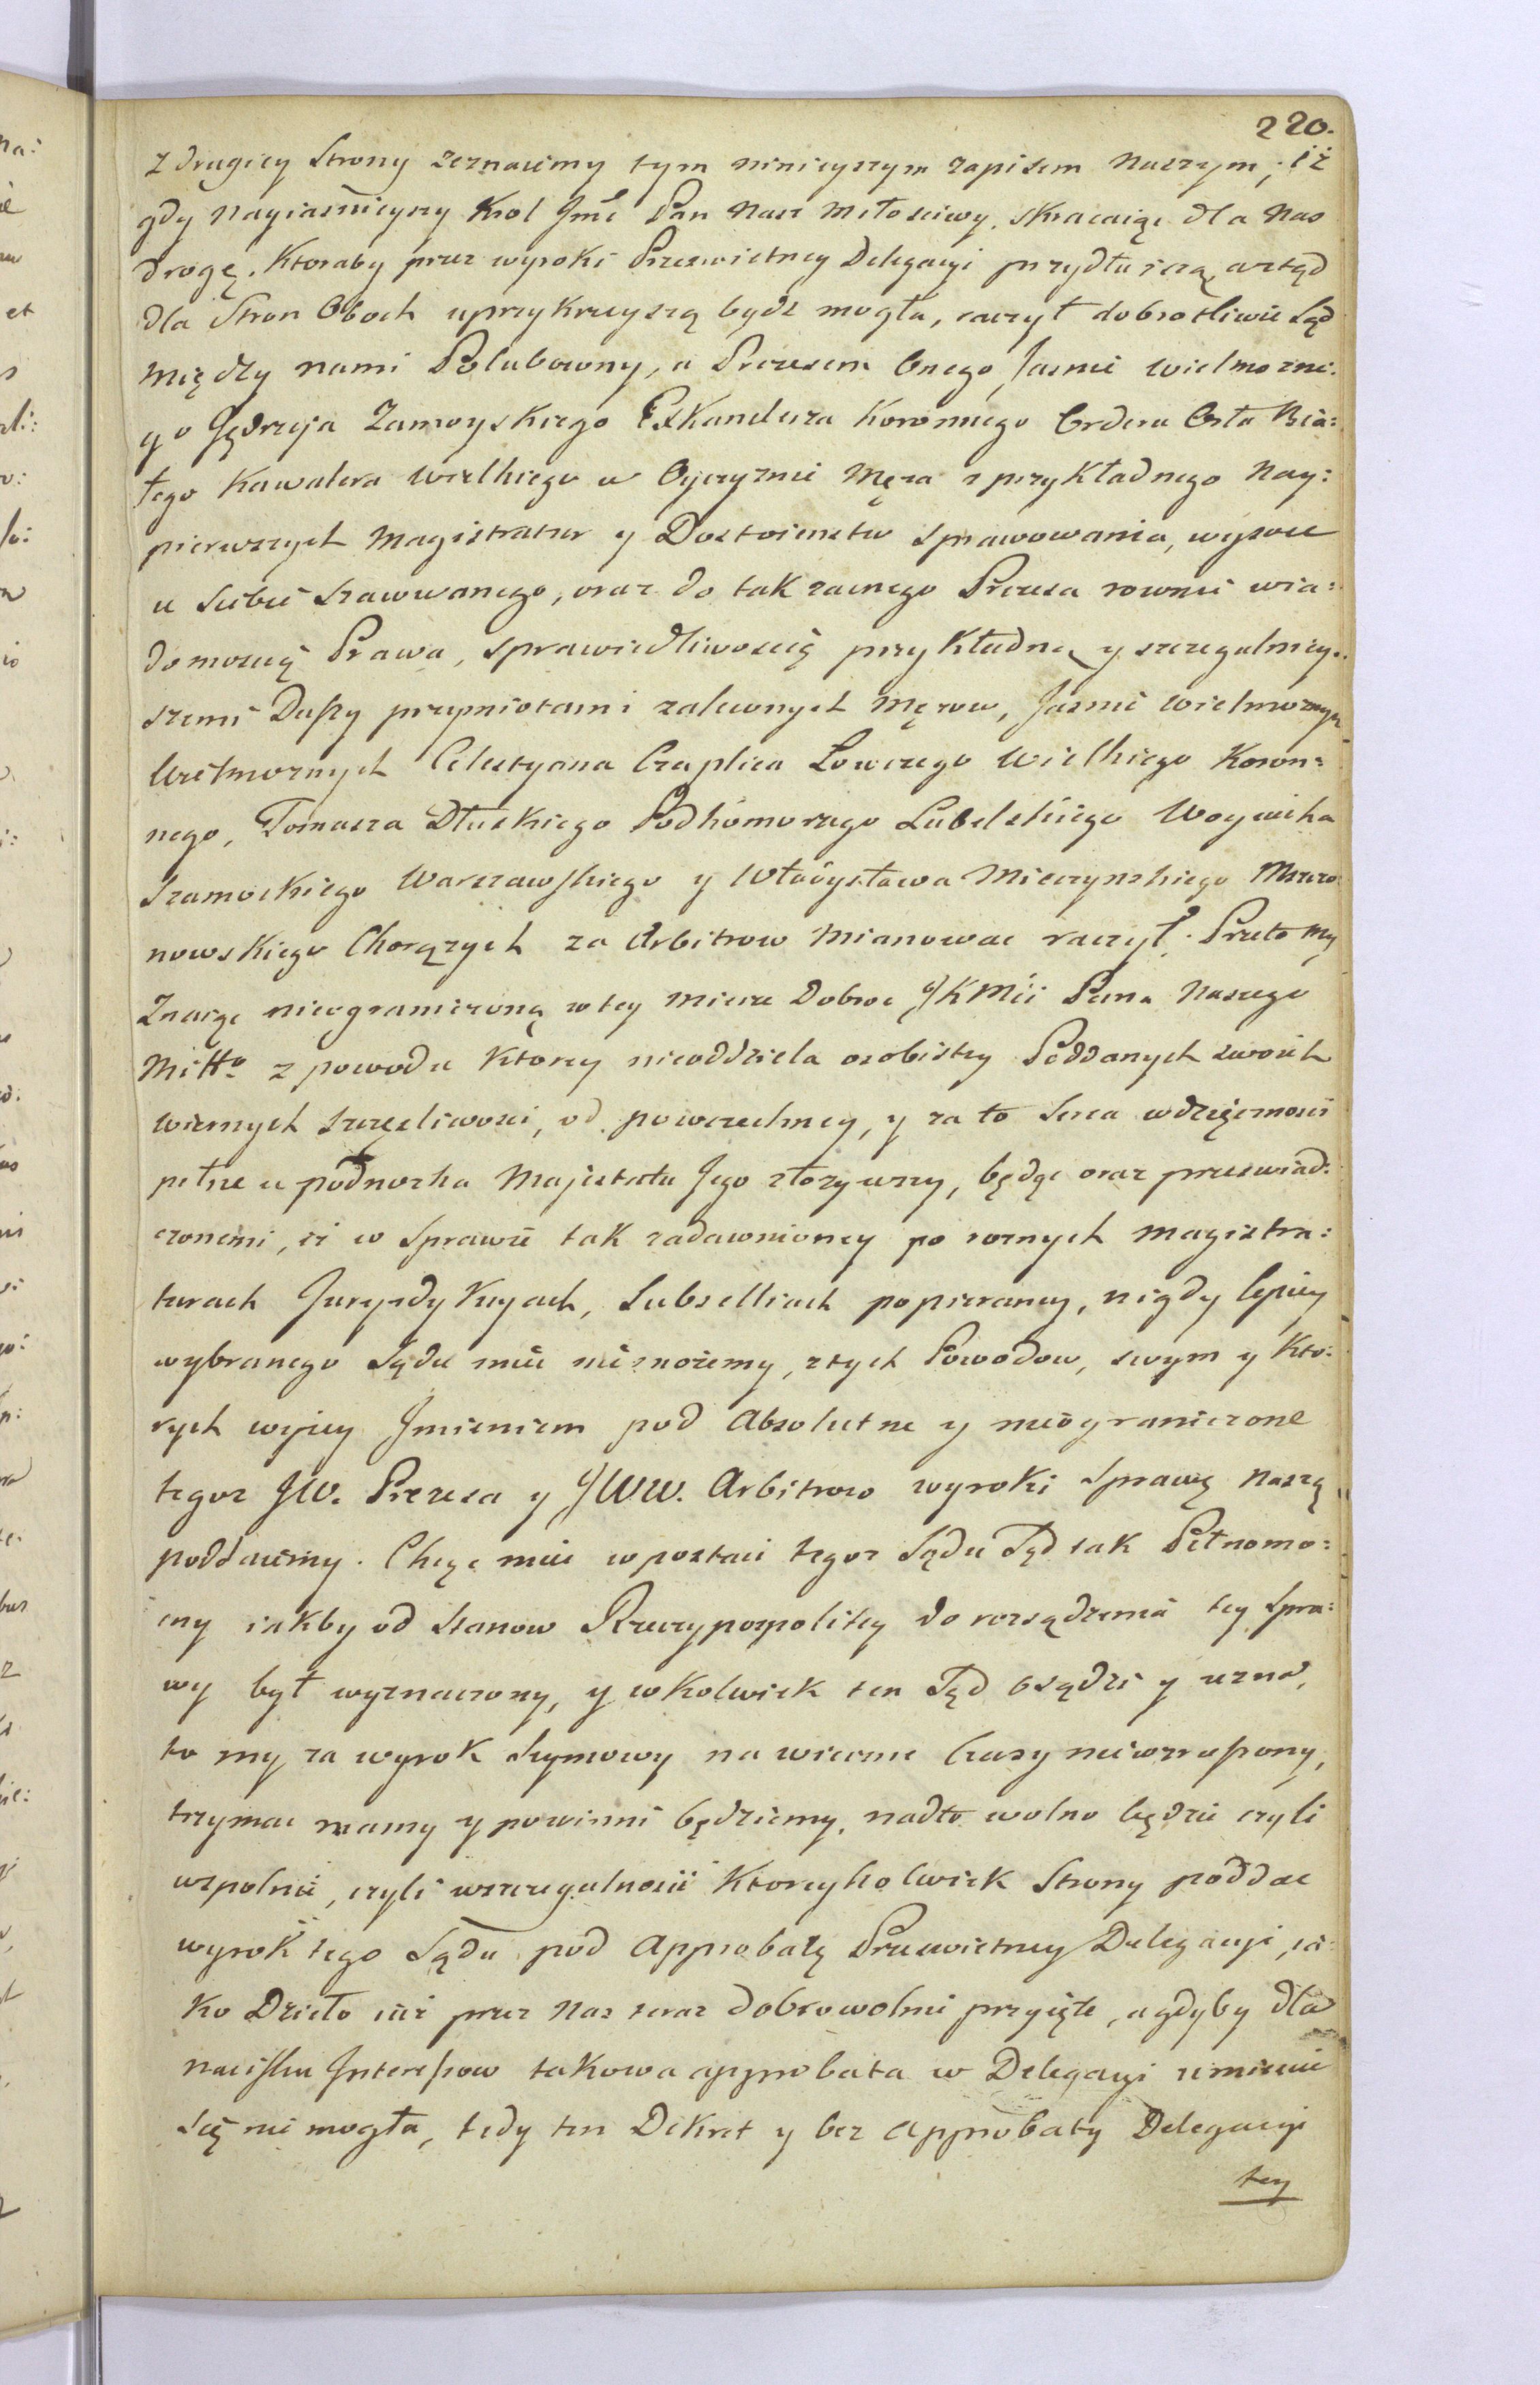 220.
z drugiey Strony zeznaiemy tym ninieyszym zapisem Naszym, iż
gdy Nayiaśnieyszy Krol Jmć Pan Nasz Miłosciwy, skracaiąc dla Nas
drogę, Ktoraby przez wyroki Prześwietney Delegacyi przydłuższą, a ztąd
dla Stron Oboch uprzykrzeyszą bydz mogła, raczył dobrotliwie Sąd
między nami Polubowny, a Prezesem Onego Jasnie Wielmozne:
go Jędrzeja Zamoyskiego ExKanclerza Koronnego Orderu Orła Bia:
łego Kawalera Wielkiego w Oyczyznie Męza z przykładnego Nay:
pierwszych Magistratur y Dostoienstw sprawowania, wysoce
u Siebie Szacowanego, oraz do tak zacnego Prezesa rownie wia:
domoscią Prawa, sprawiedliwoscią przykładną y szczegulniey:
szemi Duszy przymiotami zalewnych Męzow, Jasnie Wielmoznych
Wielmoznych Celestyana Czaplica Łowczego Wielkiego Koron:
nego, Tomasza Dłuskiego Podkomorzego Lubelskiego Woyciecha
Szamockiego Warszawskiego y Władysława Mieczynskiego Mszczo
nowskiego Chorązych za Arbitrow Mianowac raczył. Przeto My
Znaiąc nieograniczoną w tey mierze Dobroc JKMci Pana Naszego
Miłło z powodu Ktorey nieoddziela osobistey Poddanych swoich
wiernych szczęsliwosci, od powszechney, y za to Serca wdzięcznosci
pełne u podnozka Majestatu Jego złozywszy, będąc oraz przeswiad:
czonemi, iż w Sprawie tak zadawnioney po roznych Magistra:
turach Juryzdykcyach, Subselliach popieraney, nigdy lepiey
wybranego Sądu miec nie możemy, z tych Powodow, swym y Kto:
rych wyzey Jmieniem pod Absolutne y nieograniczone
tegoz JW. Prezesa y JWW. Arbitrow wyroki Sprawę naszą
poddaiemy. Chcąc miec w postaci tegoz Sądu Sąd iak Pełnomo:
cny iakby od Stanow Rzeczypospolitey do rozsądzenia tey Spra:
wy był wyznaczony, y cokolwiek ten Sąd osądzi y uzna,
to my za wyrok Seymowy na wieczne Czasy niewzruszony,
trzymac mamy y powinni będziemy, nadto wolno będzie czyli
wspolnie, czyli wszczegulnosci Ktoreykolwiek Strony poddac
wyrok tego Sądu pod Approbatę Prześwietney Delegacyi, ia:
ko Dzieło iuż przez Nas teraz dobrowolnie przyięte, a gdyby dla
nacisku Interessow takowa approbata w Delegacyi umiescic
się nie mogła, tedy ten Dekret y bez Approbaty Delegacyi
tey